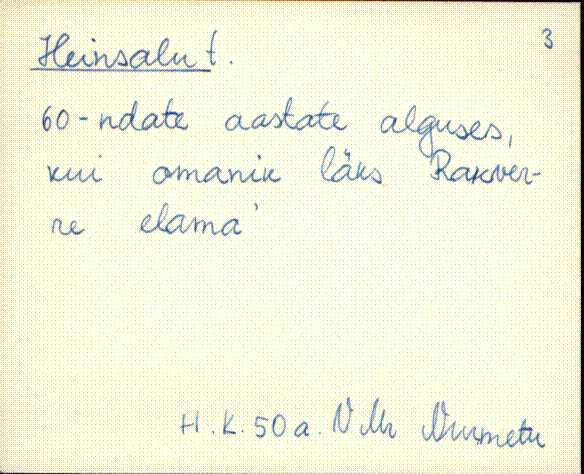 3
Heinsalu t.
60-ndate aastate alguses,
kui omanik läks Rakver-
re elama'
H.K. 50a. VMr Nurmetu